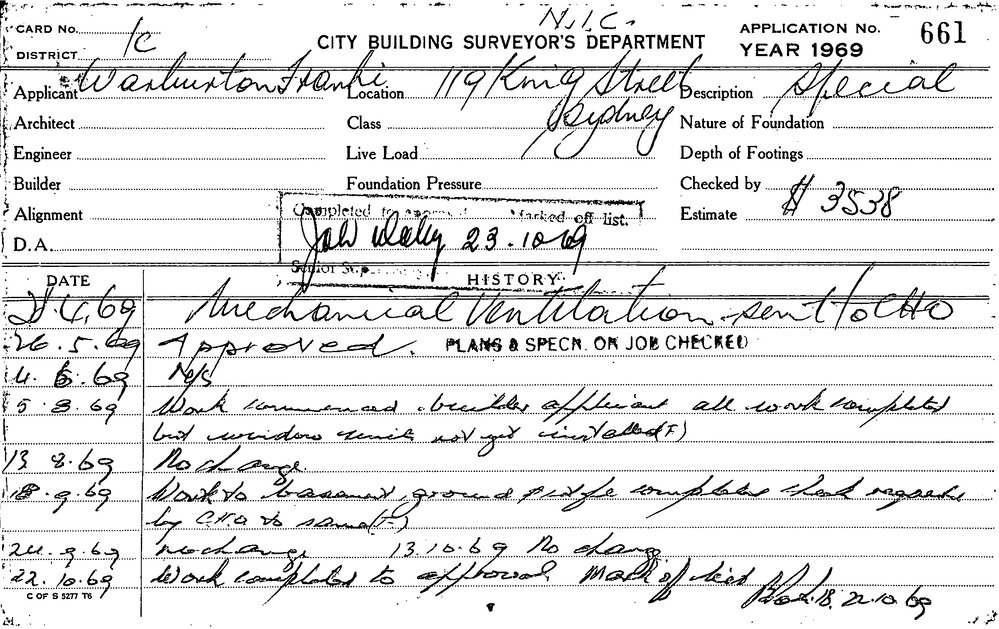 N.I.C.
CARD No.
DISTRICT 1c
CITY BUILDING SURVEYOR'S DEPARTMENT
APPLICATION No. 661
YEAR 1969
Applicant Warburton Franki Location 119 King Street Sydney Description Special
Architect Class Nature of Foundation
Engineer Live Load Depth of Footings
Builder Foundation Pressure Checked by
Alignment Estimate $ 3538
D.A.
Completed to approval Marked off list.
23.10.69
Senior Sup
DATE HISTORY
4.69 Mechanical Ventilation - sent to CHO
26.5.69 Approved. PLANS & SPECN. ON JOB CHECKED
4.6.69 N/S
5.8.69 Work commenced builder applicant all work completed
but window units not yet installed (F)
13.8.69 No change.
18.9.69 Work to basement, ground completed check
by C.H.O to same (F)
24.9.69 no change 13.10.69 No change
22.10.69 Work completed to approval Mark off list
22.10.69
C OF S 5277 T6